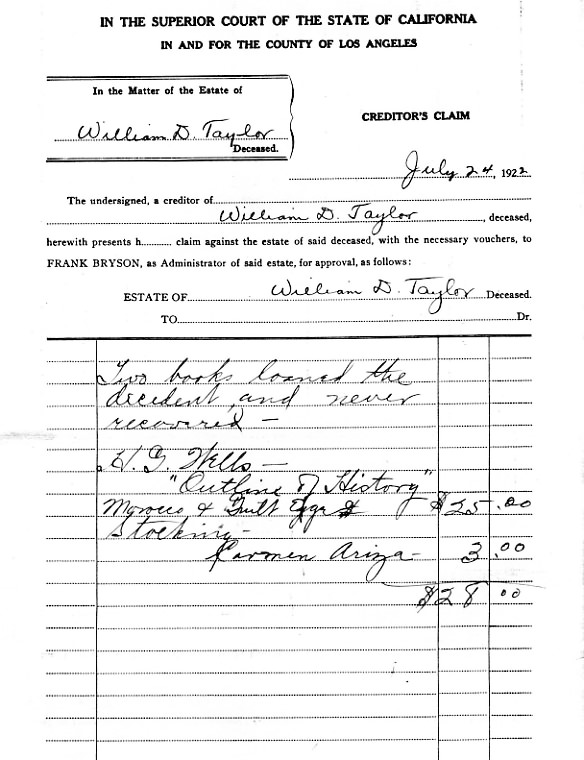 IN THE SUPERIOR COURT OF THE STATE OF CALIFORNIA
IN AND FOR THE COUNTY OF LOS ANGELES
In the Matter of the Estate of
William D. Taylor
Deceased.
CREDITOR'S CLAIM
July 24, 1922
The undersigned, a creditor of
William D. Taylor, deceased,
herewith presents h......... claim against the estate of said deceased, with the necessary vouchers, to
FRANK BRYSON, as Administrator of said estate, for approval, as follows:
ESTATE OF William D. Taylor Deceased.
TO Dr.
Two books loaned the
decedent, and never
recovered —
H. G. Wells —
"Outline of History"
Morocco & Guilt $25.00
Carmen Ariza — 3.00
$28.00